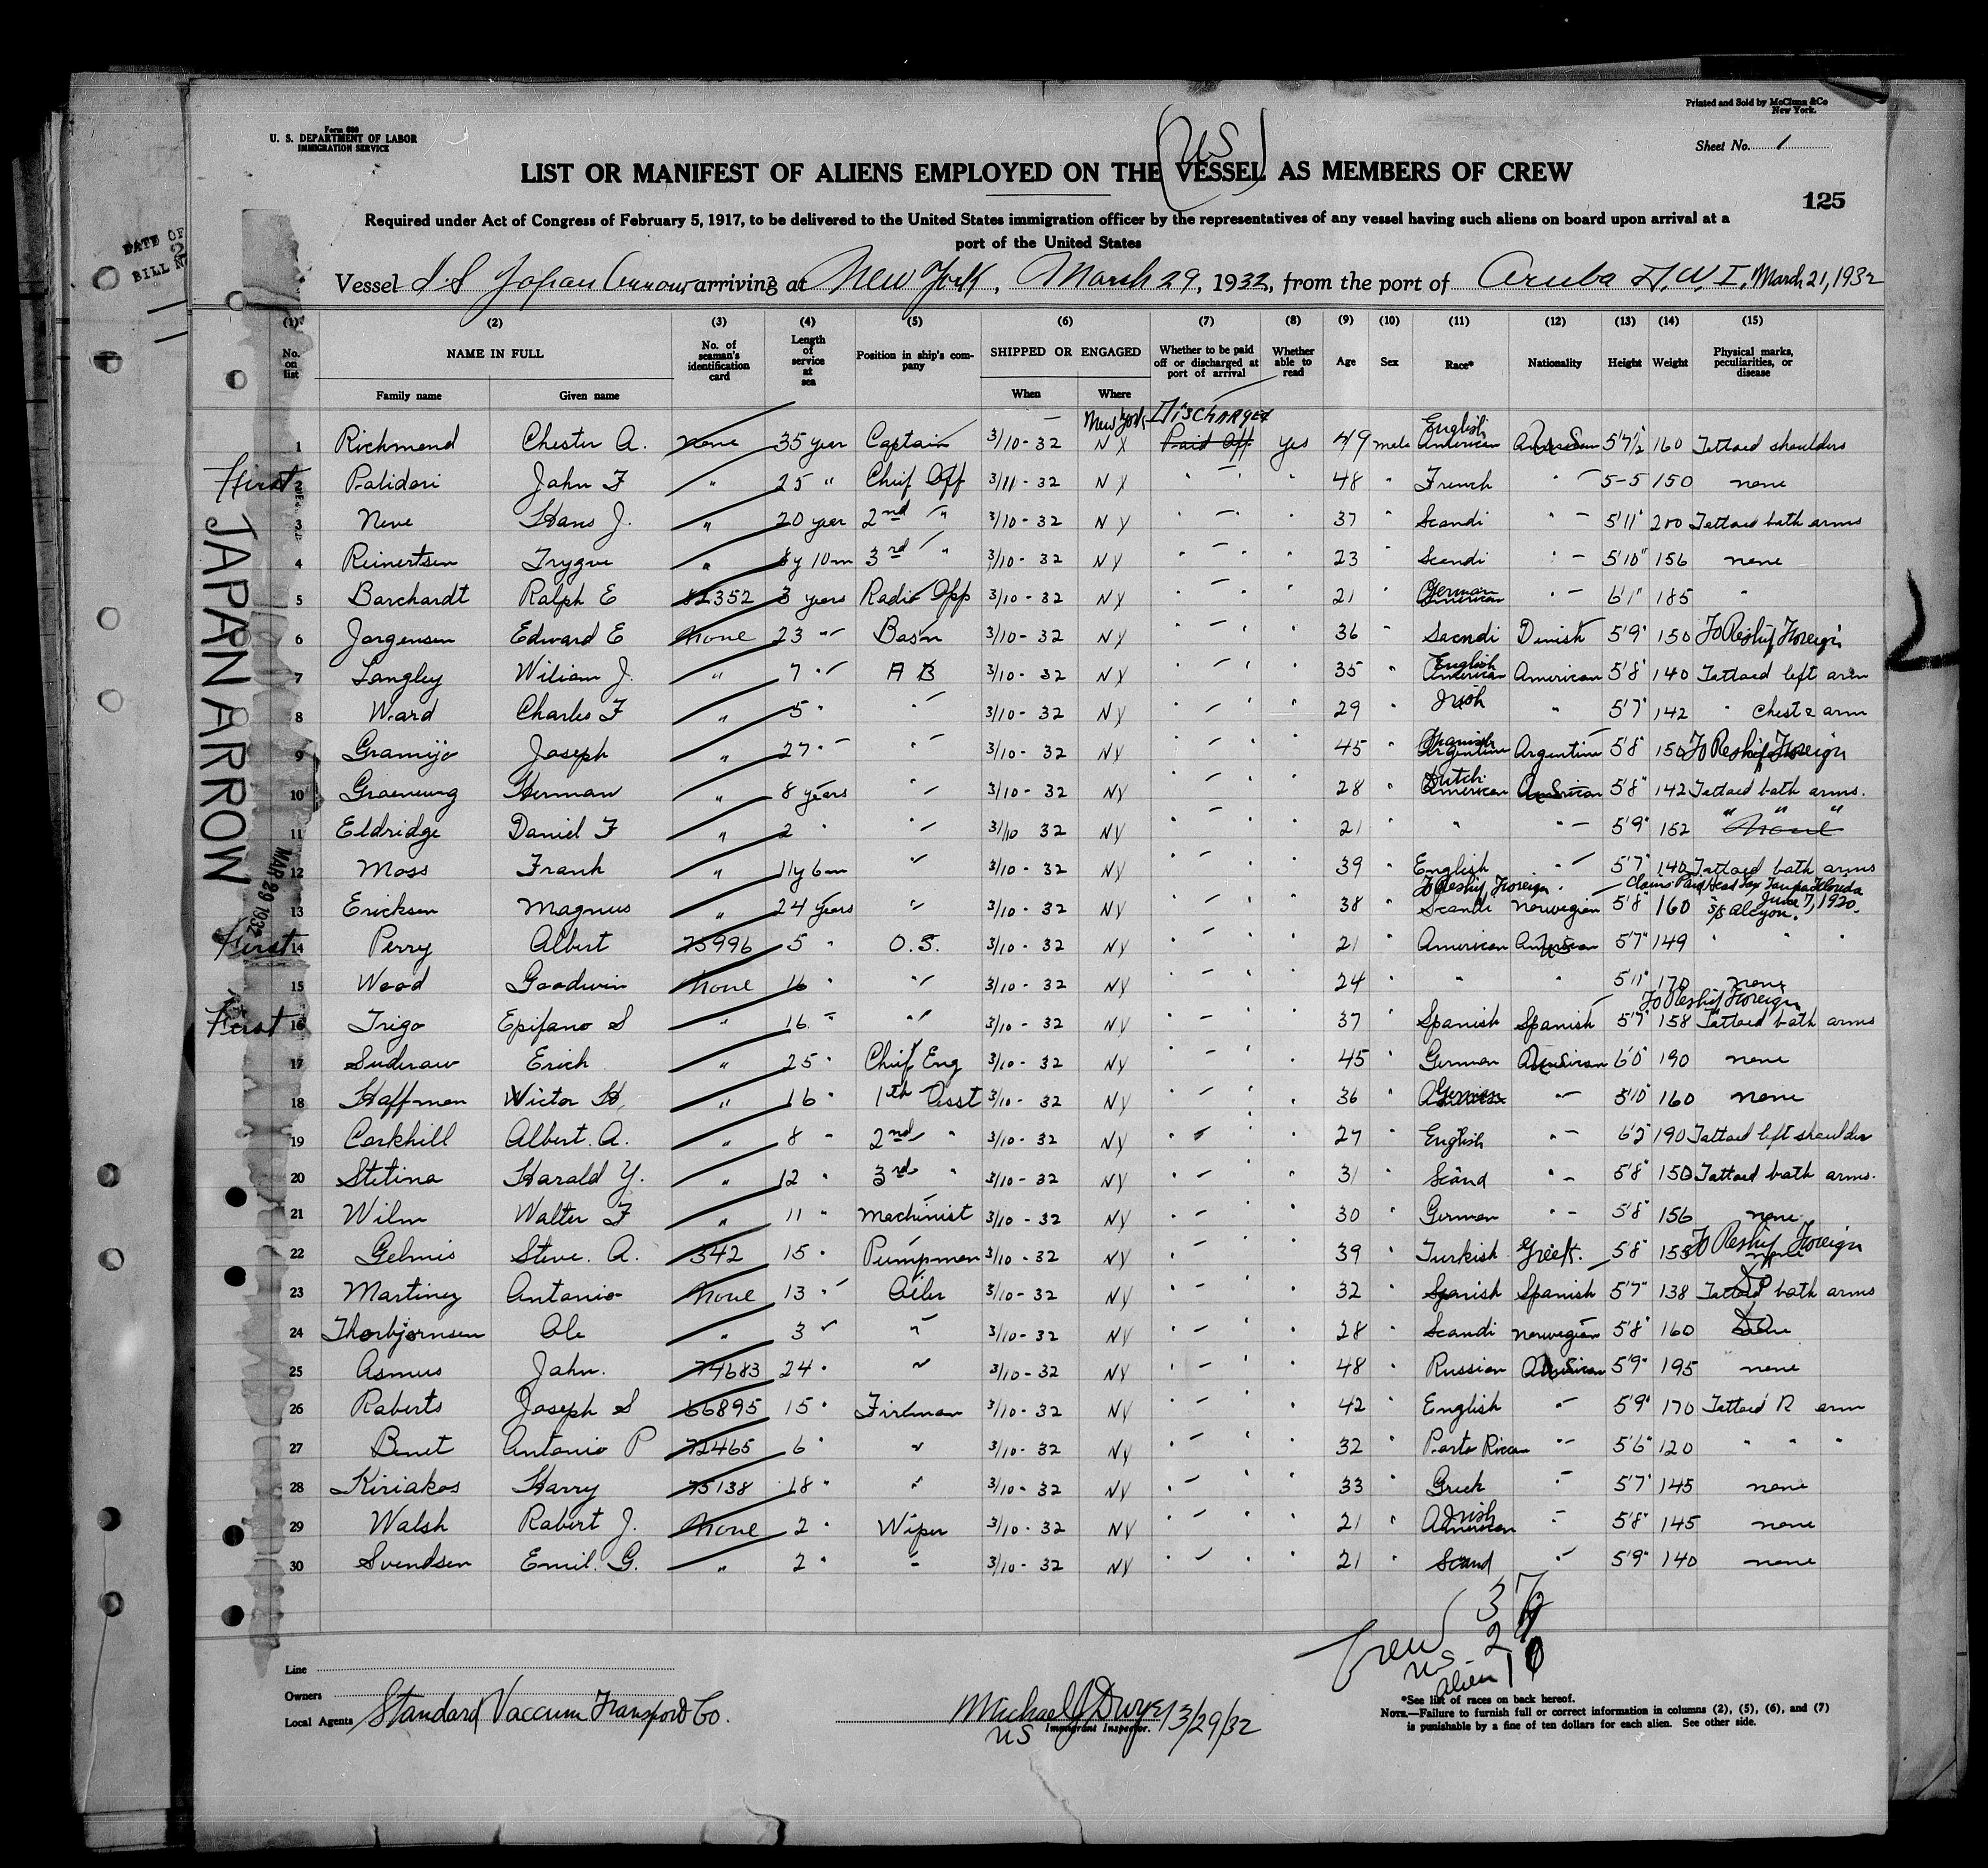 Printed and Sold by McClunn & Co
New York.
Form 680
U. S. DEPARTMENT OF LABOR
IMMIGRATION SERVICE
Sheet No. 1
(US)
LIST OR MANIFEST OF ALIENS EMPLOYED ON THE VESSEL AS MEMBERS OF CREW
125
Required under Act of Congress of February 5, 1917, to be delivered to the United States immigration officer by the representatives of any vessel having such aliens on board upon arrival at a
port of the United States
DATE OF
BILL N
Vessel S.S Japan Arrow arriving at New York, March 29, 1932, from the port of Aruba D.W.I. March 21, 1932
(1) (2) (3) (4) (5) (6) (7) (8) (9) (10) (11) (12) (13) (14) (15)
No. on list NAME IN FULL No. of seaman's identification card Length of service at sea Position in ship's company SHIPPED OR ENGAGED Whether to be paid off or discharged at port of arrival Whether able to read Age Sex Race* Nationality Height Weight Physical marks, peculiarities, or disease
Family name Given name When Where
New York Discharged English
1 Richmond Chester A. none 35 year Captain 3/10-32 NY Paid Off yes 49 male American American 5'7½ 160 Tattoed shoulders
First 2 Palidori John F " 25 " Chief Off 3/11-32 NY " " " 48 " French " 5-5 150 none
3 Neve Hans J. " 20 year 2nd " 3/10-32 NY " " " 37 " Scandi " 5'11" 200 Tattoed both arms
4 Reinertsen Trygve " 8y 10m 3rd " 3/10-32 NY " " " 23 " Scandi " 5'10" 156 none
5 Barchardt Ralph E 82352 3 years Radio Opp 3/10-32 NY " " " 21 " German American " 6'1" 185 "
6 Jorgensen Edward E None 23 " Bas'n 3/10-32 NY " " " 36 " Sacndi Dinish 5'9" 150 To Reship Foreign
7 Langley Wiliam J. " 7 " A B 3/10-32 NY " " " 35 " English American American 5'8" 140 Tattoed left arm
8 Ward Charles F " 5 " " 3/10-32 NY " " " 29 " Irish " 5'7" 142 " Chest & arm
9 Gramijo Joseph " 27 " " 3/10-32 NY " " " 45 " Spanish Argentine Argentine 5'8" 150 To Reship Foreign
10 Graeneung Herman " 8 years " 3/10-32 NY " " " 28 " Dutch American American 5'8" 142 Tattoed both arms.
11 Eldridge Daniel F " 2 " " 3/10 32 NY " 21 " " " 5'9" 152 none " " "
12 Moss Frank " 11y 6m " 3/10-32 NY " " " 39 " English " 5'7" 140 Tattoed both arms
To Reship Foreign. Claims Paid Head Tax Tampa Florida
June 7, 1920.
13 Ericksen Magnus " 24 years " 3/10-32 NY " " " 38 " Scandi Norwegian 5'8" 160 S/S Alcyon.
First 14 Perry Albert 75996 5 " O.S. 3/10-32 NY " " " 21 " American American 5'7" 149 " " "
15 Wood Goodwin None 16 " " 3/10-32 NY " " " 24 " " " 5'11" 170 none
To Reship Foreign
First 16 Trigo Epifano S " 16 " " 3/10-32 NY " " " 37 " Spanish Spanish 5'7" 158 Tattoed both arms
17 Suderow Erich " 25 " Chief Eng 3/10-32 NY " " " 45 " German American 6'0" 190 none
18 Haffman Victor H. " 16 " 1th Asst 3/10-32 NY " " " 36 " German " 5'10" 160 none
19 Corkhill Albert. A. " 8 " 2nd " 3/10-32 NY " " " 27 " English " 6'2" 190 Tattoed left shoulder
20 Stetina Harald Y. " 12 " 3rd " 3/10-32 NY " " " 31 " Scand " 5'8" 150 Tattoed both arms.
21 Wilm Walter F " 11 " Machinist 3/10-32 NY " " " 30 " German " 5'8" 156 none
22 Gelmis Steve. A. 342 15 " Pumpman 3/10-32 NY " " " 39 " Turkish Greek. 5'8" 155 none To Reship Foreign
23 Martinez Antonio None 13 " Oiler 3/10-32 NY " " " 32 " Spanish Spanish 5'7" 138 Tattoed both arms Do
24 Thorbjornsen Ole " 3 " " 3/10-32 NY " " " 28 " Scandi Norwegian 5'8" 160 Do
25 Asmus John. 74683 24 " " 3/10-32 NY " " " 48 " Russian American 5'9" 195 none
26 Roberts Joseph S 66895 15 " Firlman 3/10-32 NY " " " 42 " English " 5'9" 170 Tattoed R arm
27 Benet Antonio P 72465 6 " " 3/10-32 NY " " " 32 " Porto Rican " 5'6" 120 " " "
28 Kiriakos Harry 75138 18 " " 3/10-32 NY " " " 33 " Greek " 5'7" 145 none
29 Walsh Robert J. None 2 " Wiper 3/10-32 NY " " " 21 " Irish American " 5'8" 145 none
30 Svendsen Emil. G. " 2 " " 3/10-32 NY " " " 21 " Scand " 5'9" 140 none
JAPAN ARROW
MAR 29 1932
Crew 37
US - 2
Alien 10
Line
Owners
Local Agents Standard Vaccum Transport Co.
Michael J Dwyer 3/29/32
US Immigrant Inspector.
*See list of races on back hereof.
NOTE.—Failure to furnish full or correct information in columns (2), (5), (6), and (7)
is punishable by a fine of ten dollars for each alien. See other side.